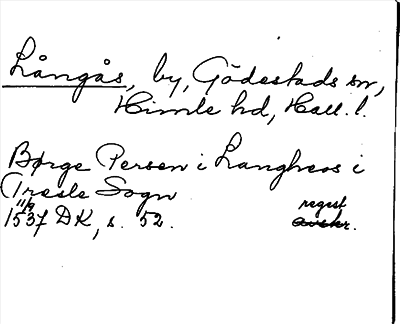 Långås, by, Gödestads sn,
Himle hd, Hall. l.
Børge Persen i Langheos i
Tresle Sogn
11/9
1537 DK, s. 52.
regest
avskr.